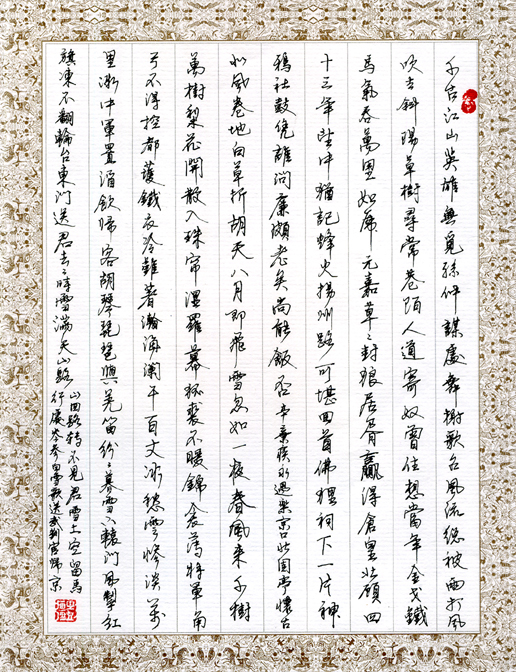 千古江山英雄無覓孫仲謀處舞榭歌台風流總被雨打風
吹去斜陽草樹尋常巷陌人道寄奴曾住想當年金戈鐵
馬氣吞萬里如虎元嘉草々封狼居胥贏得倉皇北顧四
十三年望中猶記烽火揚州路可堪回首佛狸祠下一片神
鴉社鼓憑誰問廉頗老矣尚能飯否辛棄疾永遇樂京口北固亭懷古
北風卷地白草折胡天八月即飛雪忽如一夜春風來千樹
萬樹梨花開散入珠帘濕羅幕狐裘不暖錦衾薄將軍角
弓不得控都護鐵衣冷難著瀚海闌干百丈冰愁雲慘淡萬
里凝中軍置酒飲歸客胡琴琵琶與羌笛紛々暮雪入轅門風掣紅
旗凍不翻輪台東門送君去々時雪滿天山路
山回路轉不見君雪上空留馬
行處岑參白雪歌送武判官歸京